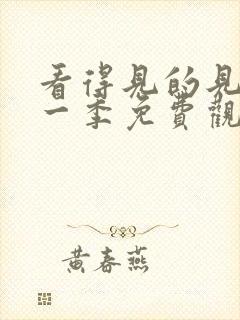 看得見的見
一季免費觀
黃春燕